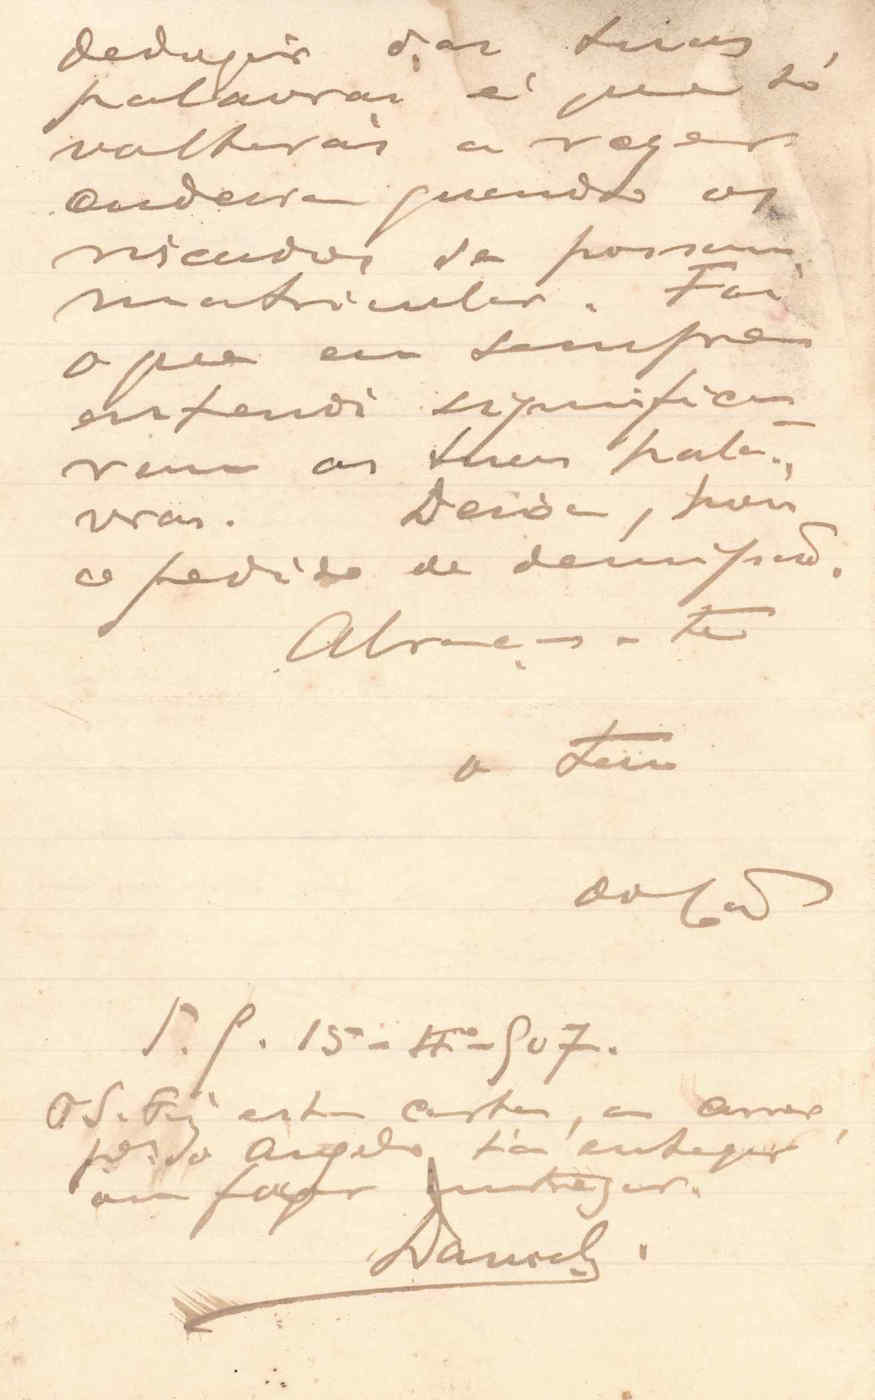 deduzir das tuas
palavras é que só
voltarás a reger
cadeira quando os
riscados se possam
matricular. Foi
o que eu sempre
entendi significa
rem as tuas pala-
vras. Deixa, pois
o pedido de demissão.
Abraça-te
o teu
15-4º-907.
P.S. Fiz esta carta, a
Angelo t'a entregar
ou fazer entregar.
Daniel.